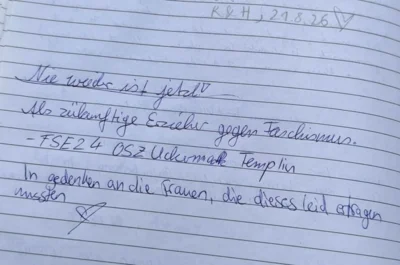 R & H, 21.8.25 ♡
Nie wieder ist jetzt!
Als zükunftige Erzieher gegen Faschismus.
- FSE24 OSZ Uckermark Templin
In gedenken an die Frauen, die dieses leid ertragen
mussten ♡